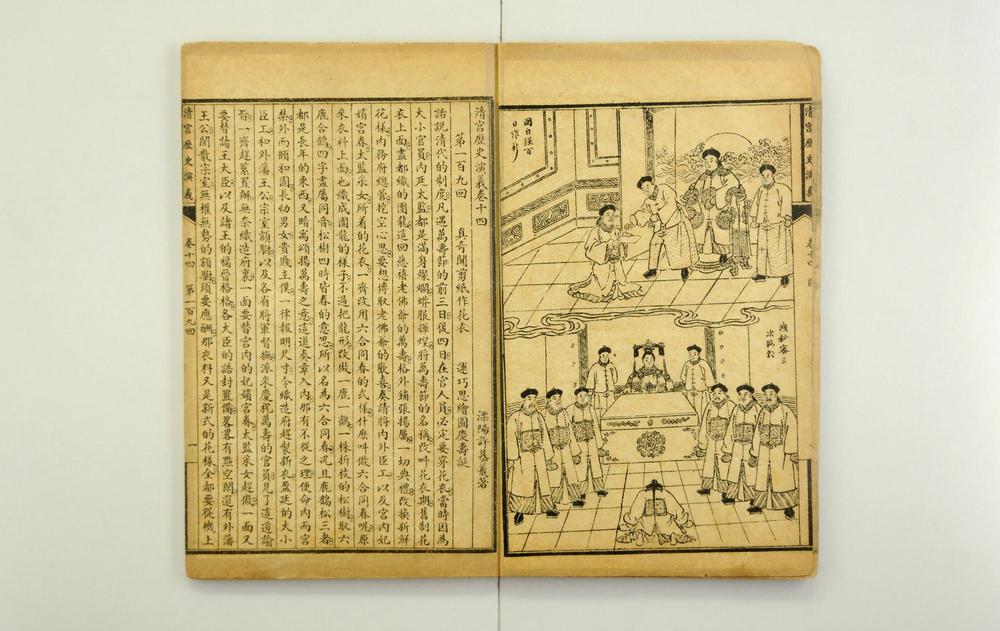 清宮歷史演義
卷十四
國自强百
日作新
議秘密三
次臨朝
清宮歷史演義卷十四 溧陽許慕羲著
第一百九回 真奇聞剪紙作花衣 運巧思繪圖慶壽誕
話說清代的制度凡遇萬壽節的前三日後四日在宮人員必定要穿花衣當時因為
大小官員內廷太監都是滿身燦爛蟒服輝煌將萬壽節的名稱改叫花衣期舊制花
衣上面盡都織的團龍這回慈禧老佛爺的萬壽格外鋪張揚厲一切典禮改換新鮮
花樣內務府總管挖空心思要想博取老佛爺的歡喜奏請將內外臣工以及宮內妃
嬪宮眷太監采女所着的花衣一齊改用六合同春的式樣什麼叫做六合同春呢原
來衣料上面也織成團龍的樣子不過把龍形改做一鹿一鶴一株折枝的松樹取六
鹿合鶴四字盡屬同音松樹四時皆春的意思所以名為六合同春況且鹿鶴松三者
都是長年的東西又暗寓頌揚萬壽之意這道奏章入內那有不從之理便命內而宮
禁外而頤和園長幼男女貴賤主僕一律報明尺寸令織造府趕製新衣盈廷的大小
臣工和外藩王公宗室額駙以及各省將軍督撫派來慶祝萬壽的官員見了這道諭
旨一齊趕緊置辦無奈織造府裏一面要替宮內的妃嬪宮眷太監采女趕做一面又
要替諸王大臣以及諸王的福晉格格各大臣的誥封置備畧畧有點空閒還有外藩
王公閒散宗室無權無勢的額駙須要應酬那衣料又是新式的花樣全都要從機上
清宮歷史演義 卷十四 第一百九回 一